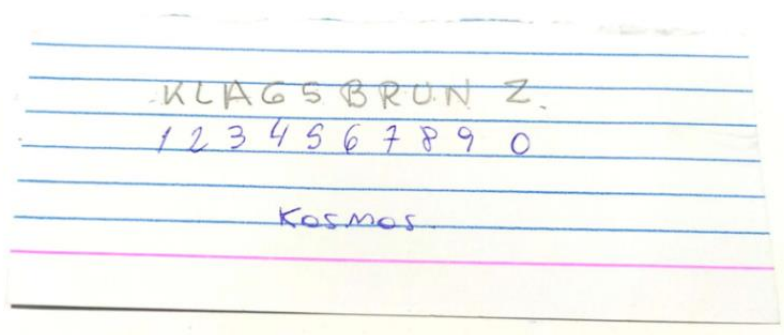 KLAGSBRUN Z.
1 2 3 4 5 6 7 8 9 0
Kosmos.